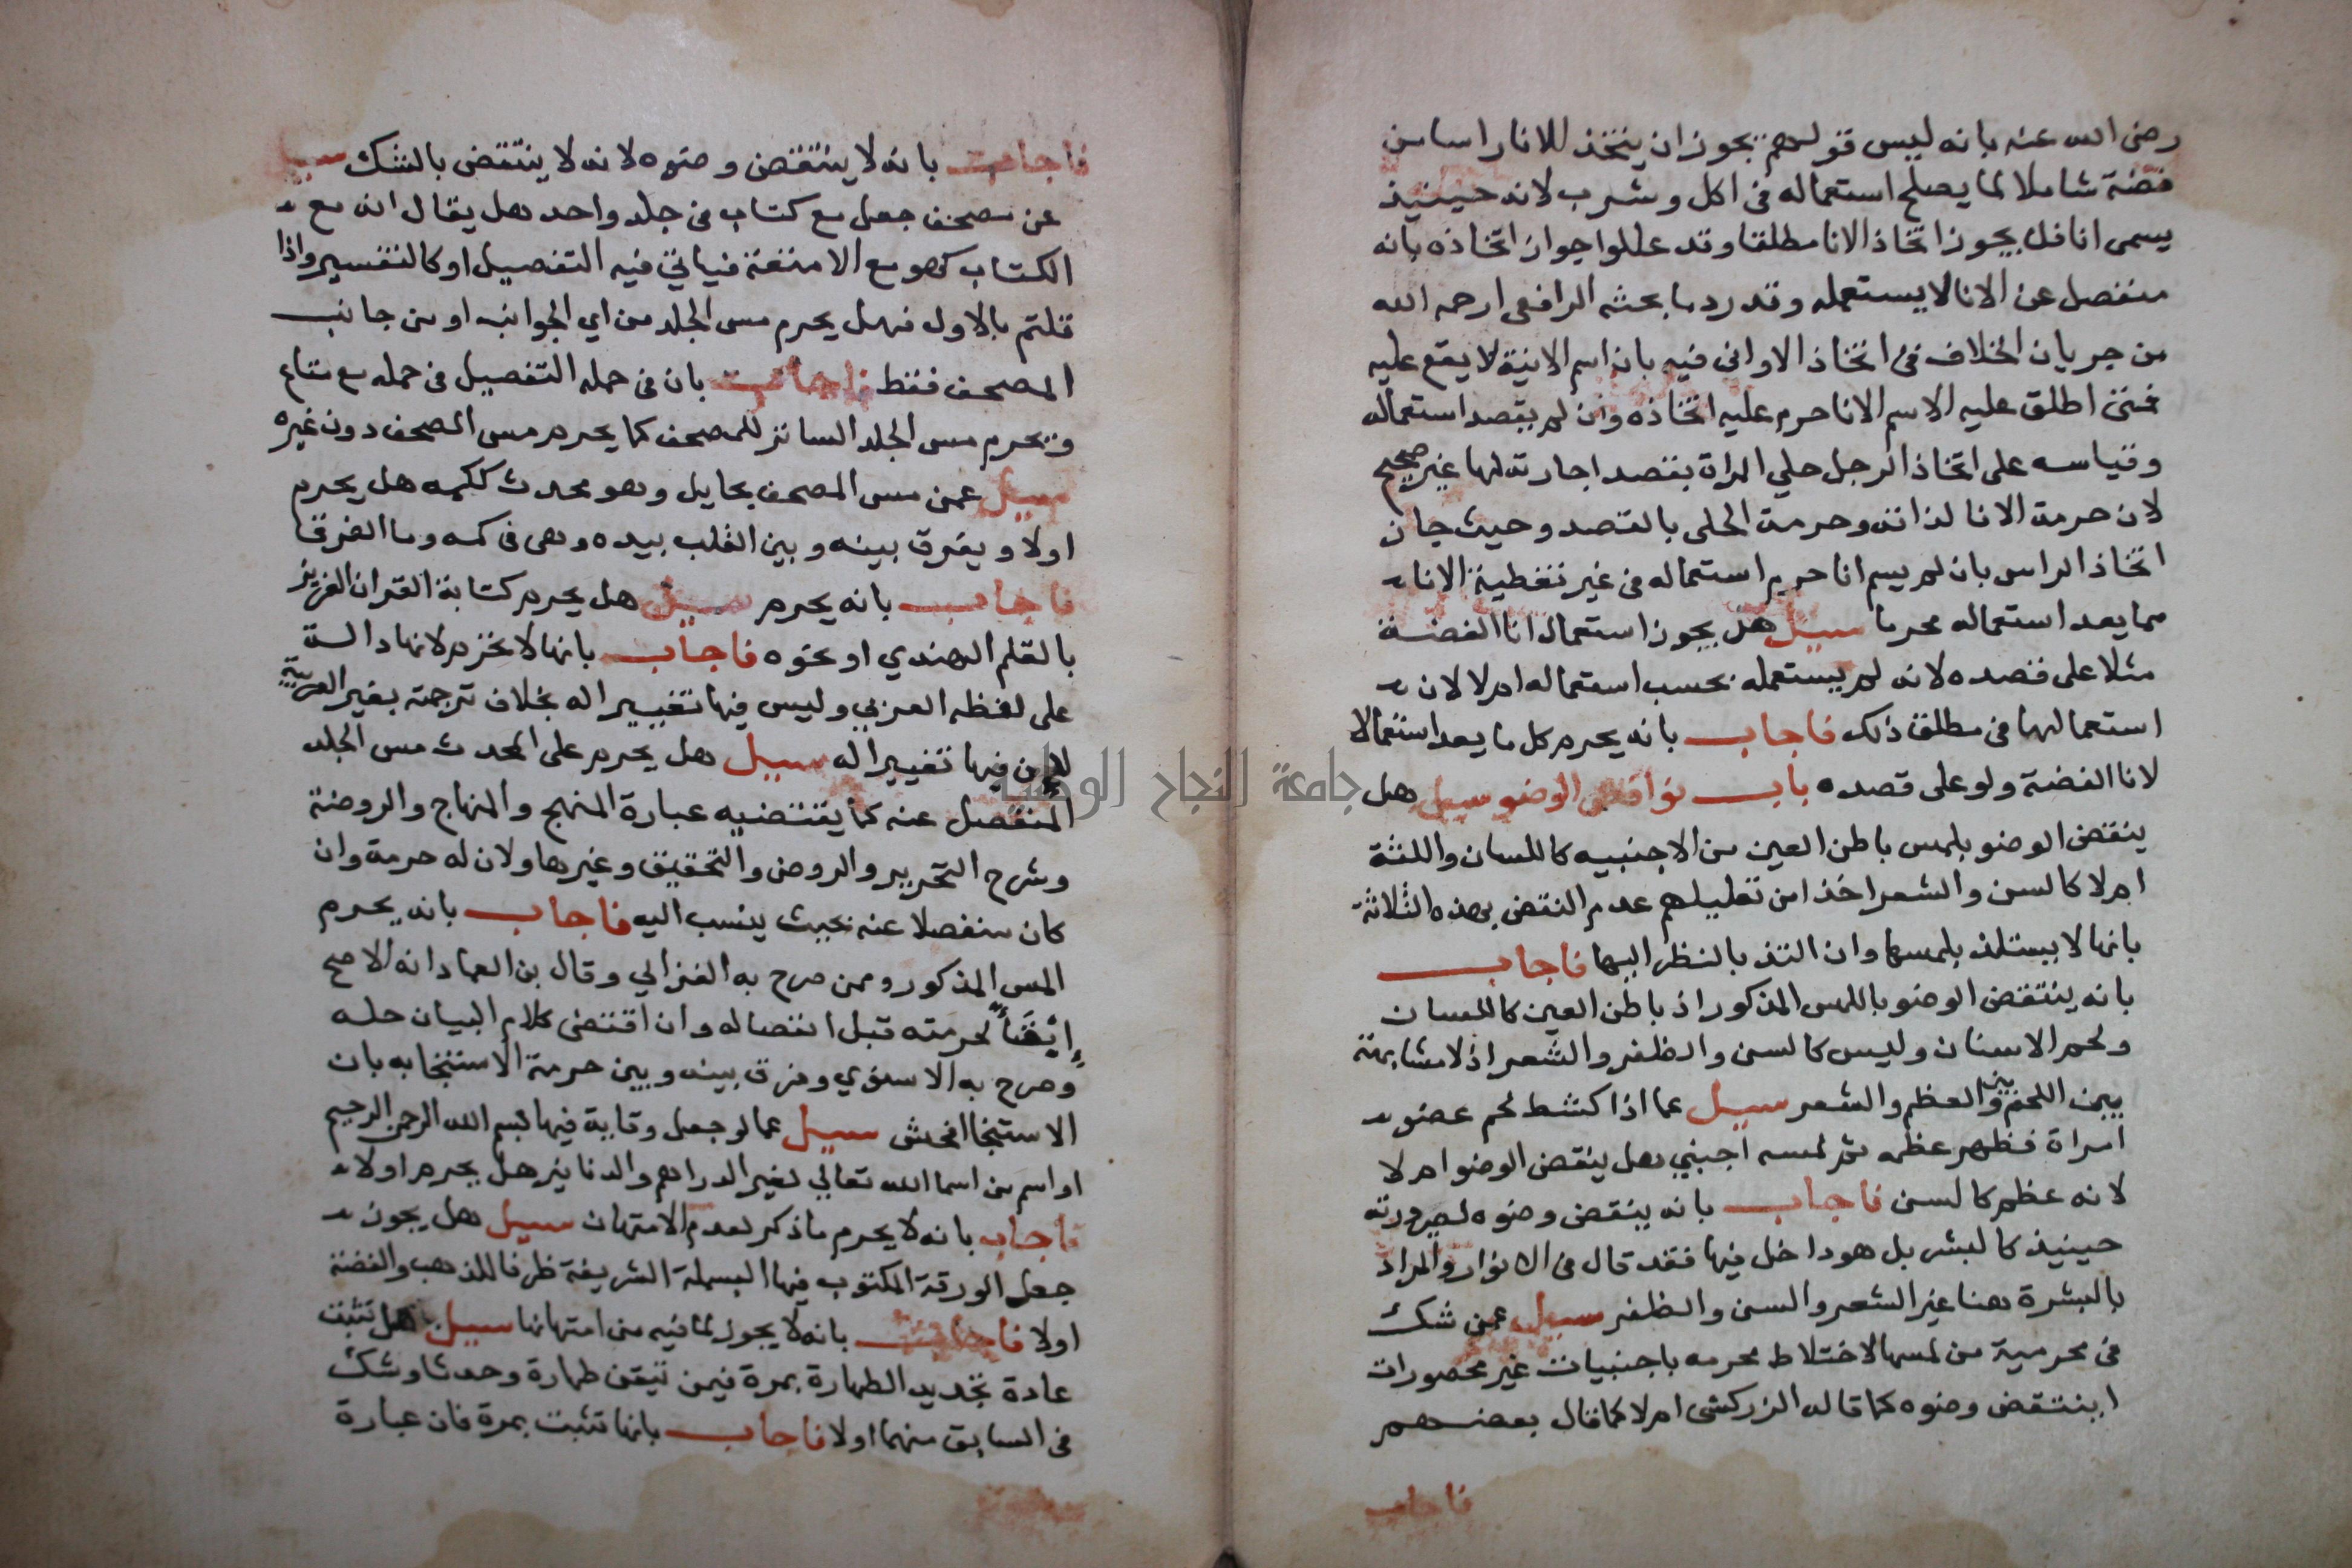 رضى الله عنه بانه ليس قولهم يجوز ان يتخذ للانا راسا من
فضة شاملا لما يصلح استعماله في اكل وشرب لانه حينيذ
يسمى انا فلا يجوز اتخاذ الانا مطلقا وقد عللوا جواز اتخاذه بانه
منفصل عن الانا لا يستعمله وقد رد ما بحثه الرافعي رحمه الله
من جريان الخلاف في اتخاذ الاواني فيه بان اسم الانية لا يقع عليه
فمتى اطلق عليه الاسم الانا حرم عليه اتخاذه وان لم يقصد استعماله
وقياسه على اتخاذ الرجل حلي المراة بقصد اجارته لها غير صحيح
لان حرمة الانا لذاته وحرمة الحلى بالقصد وحيث جاز
اتخاذ الراس بان لم يسم انا حرم استعماله في غير تغطية الانا
مما يعد استعماله محرما سيل هل يجوز استعمال انا الفضة
مثلا على قصده لانه لم يستعمله بحسب استعماله ام لا لان
استعمالها في مطلق ذلك فاجاب بانه يحرم كل ما يعد استعمالا
لانا الفضة ولو على قصده باب نواقض الوضو سيل هل
ينقض الوضو بلمس باطن العين من الاجنبيه كاللسان واللثة
ام لا كالسن والشعر اخذا من تعليلهم عدم النقض بهذه الثلاثة
بانها لا يستلذ بلمسها وان التذ بالنظر اليها فاجاب
بانه ينتقض الوضو باللمس المذكور اذ باطن العين كاللسان
ولحم الاسنان وليس كالسن والظفر والشعر اذ لا مشابهة
بين اللحم وبين العظم والشعر سيل عما اذا كشط لحم عضو
امراة فظهر عظمه ثم لمسه اجنبي هل ينقض الوضو ام لا
لانه عظم كالسن فاجاب بانه ينقض وضوه لصيرورته
حينيذ كالبشر بل هو داخل فيها فقد قال في الانوار والمراد
بالبشرة هنا غير الشعر والسن والظفر سيل عمن شك
في محرمية من لمسها لاختلاط محرمه باجنبيات غير محصورات
اينتقض وضوه كما قاله الزركشى ام لا كما قال بعضهم
فاجاب
فاجاب بانه لا ينتقض وضوه لانه لا ينتقض بالشك سيل
عن مصحف جعل مع كتاب في جلد واحد هل يقال انه مع
الكتاب كهو مع الامتعة فياتي فيه التفصيل او كالتفسير واذا
قلتم بالاول فهل يحرم مس الجلد من اي الجوانب او من جانب
المصحف فقط فاجاب بان في حمله التفصيل في حمله مع متاع
وتحرم مس الجلد الساتر للمصحف كما يحرم مس المصحف دون غيره
سيل عمن مس المصحف بحايل وهو محدث ككمه هل يحرم
اولا ويفرق بينه وبين القلب بيده وهي في كمه وما الفرق
فاجاب بانه يحرم سيل هل يحرم كتابة القران العزيز
بالقلم الهندي او نحوه فاجاب بانها لا تحرم لانها دالة
على لفظه العزبي وليس فيها تغيير اله بخلاف ترجمته بغير العربية
لان فيها تغيير اله سيل هل يحرم على المحدث مس الجلد
المنفصل عنه كما يقتضيه عبارة المنهج والمنهاج والروضة
وشرح التحرير والروض والتحقيق وغيرها ولان له حرمة وان
كان منفصلا عنه بحيث ينسب اليه فاجاب بانه يحرم
المس المذكور وممن صرح به الغزالي وقال بن العماد انه الاصح
ايضا لحرمته قبل انفصاله وان اقتضى كلام البيان حله
وصرح به الاسنوي وفرق بينه وبين حرمة الاستنجا به بان
الاستنجا افحش سيل عما لو جعل وقاية فيها بسم الله الرحمن الرحيم
او اسم من اسما الله تعالي لغير الدراهم والدنانير هل يحرم اولا
فاجاب بانه لا يحرم ما ذكر لعدم الامتهان سيل هل يجوز
جعل الورقة المكتوب فيها البسملة الشريفة ظرفا للذهب والفضة
اولا فاجاب بانه لا يجوز لما فيه من امتهانها سيل هل تثبت
عادة تجديد الطهارة بمرة فيمن تيقن طهارة وحدثا وشك
في السابق منهما اولا فاجاب بانها تثبت بمرة فان عبارة
جامعة النجاح الوطنية